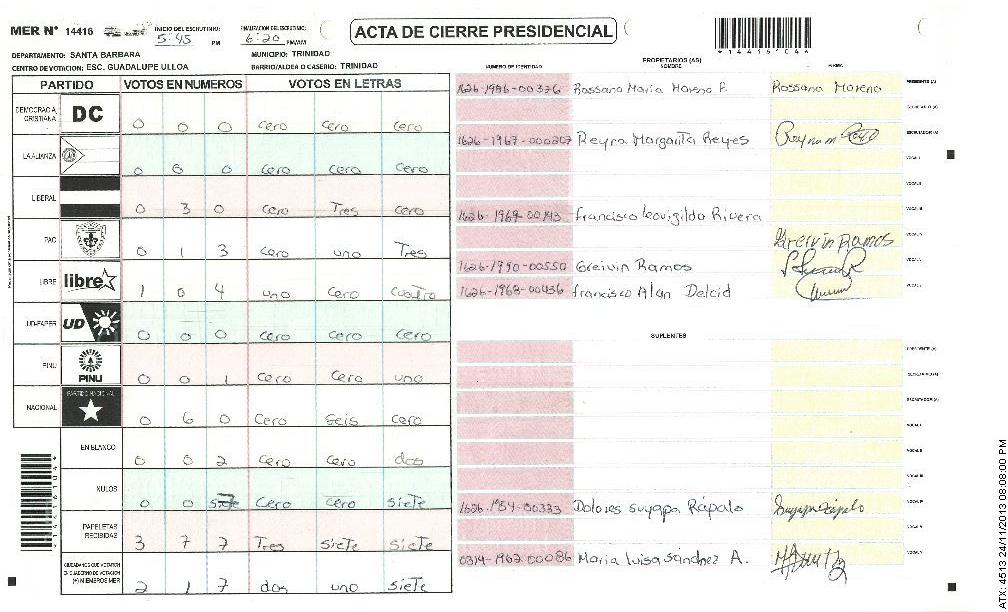 MER Nº 14416 INICIO DEL ESCRUTINIO: 5:45 PM FINALIZACION DEL ESCRUTINIO: 6:20 PM/AM ACTA DE CIERRE PRESIDENCIAL
DEPARTAMENTO: SANTA BARBARA MUNICIPIO: TRINIDAD
CENTRO DE VOTACION: ESC. GUADALUPE ULLOA BARRIO/ALDEA O CASERIO: TRINIDAD
PARTIDO VOTOS EN NUMEROS VOTOS EN LETRAS
DEMOCRACIA CRISTIANA DC 0 0 0 cero cero cero
LA ALIANZA 0 0 0 cero cero cero
LIBERAL 0 3 0 cero Tres cero
PAC 0 1 3 cero uno Tres
LIBRE libre 1 0 4 uno cero cuatro
UD-FAPER UD 0 0 0 cero cero cero
PINU PINU 0 0 1 cero cero uno
NACIONAL PARTIDO NACIONAL 0 6 0 cero seis cero
EN BLANCO 0 0 2 cero cero dos
NULOS 0 0 7 cero cero siete
PAPELETAS RECIBIDAS 3 7 7 Tres siete siete
CIUDADANOS QUE VOTARON EN CUADERNO DE VOTACION (+) MIEMBROS MER 2 1 7 dos uno siete
PROPIETARIOS (AS)
NUMERO DE IDENTIDAD NOMBRE FIRMA
1626-1986-00376 Rossana Maria Moreno P. Rossana Moreno PRESIDENTE (A)
SECRETARIO (A)
1626-1967-000207 Reyna Margarita Reyes ESCRUTADOR (A)
VOCAL I
VOCAL II
1626-1969-00143 Francisco Leovigildo Rivera VOCAL III
Greivin Ramos VOCAL IV
1626-1990-00550 Greivin Ramos VOCAL V
1626-1968-00436 Francisco Alan Delcid
SUPLENTES
PRESIDENTE (A)
SECRETARIO (A)
ESCRUTADOR (A)
VOCAL I
VOCAL II
VOCAL III
1626-1954-00333 Dolores Suyapa Rápalo Suyapa Rápalo VOCAL IV
VOCAL V
0314-1962-00086 Maria Luisa Sánchez A.
14416104
ATX: 4513 24/11/2013 08:08:00 PM